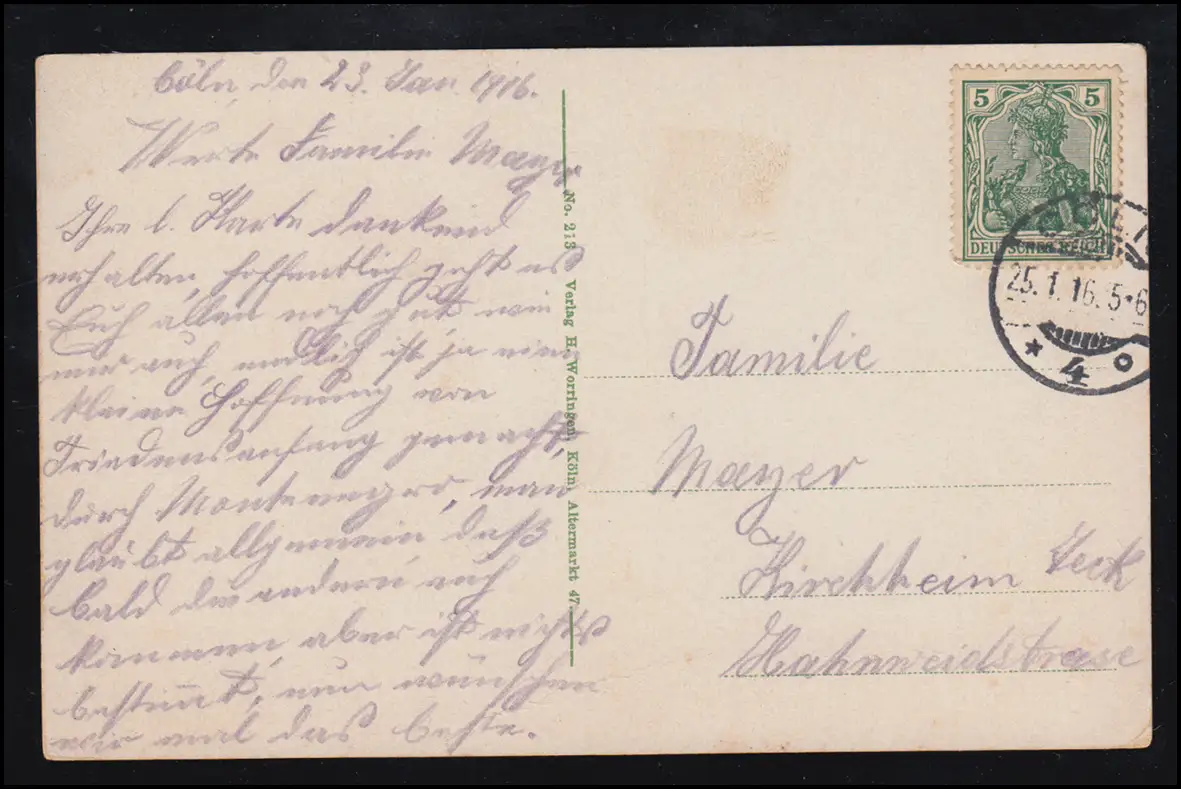 Cöln, den 23. Jan 1916.
Werte Familie Mayer
Ihre l. Karte dankend
erhalten, hoffentlich geht es
Euch allen noch gut, wie
mir auch, endlich ist ja eine
kleine Hoffnung von
Friedensanfang gemacht,
durch Montenegro, man
glaubt allgemein daß
bald die andern auch
kommen, aber ist nichts
bestimmt, nun wünschen
wir mal das beste.
No. 213 Verlag H. Worringen, Köln, Altermarkt 47.
5 5
DEUTSCHES REICH
25.1.16. 5-6
* 4 o
Familie
Mayer
Kirchheim Teck
Hahnweidstrase